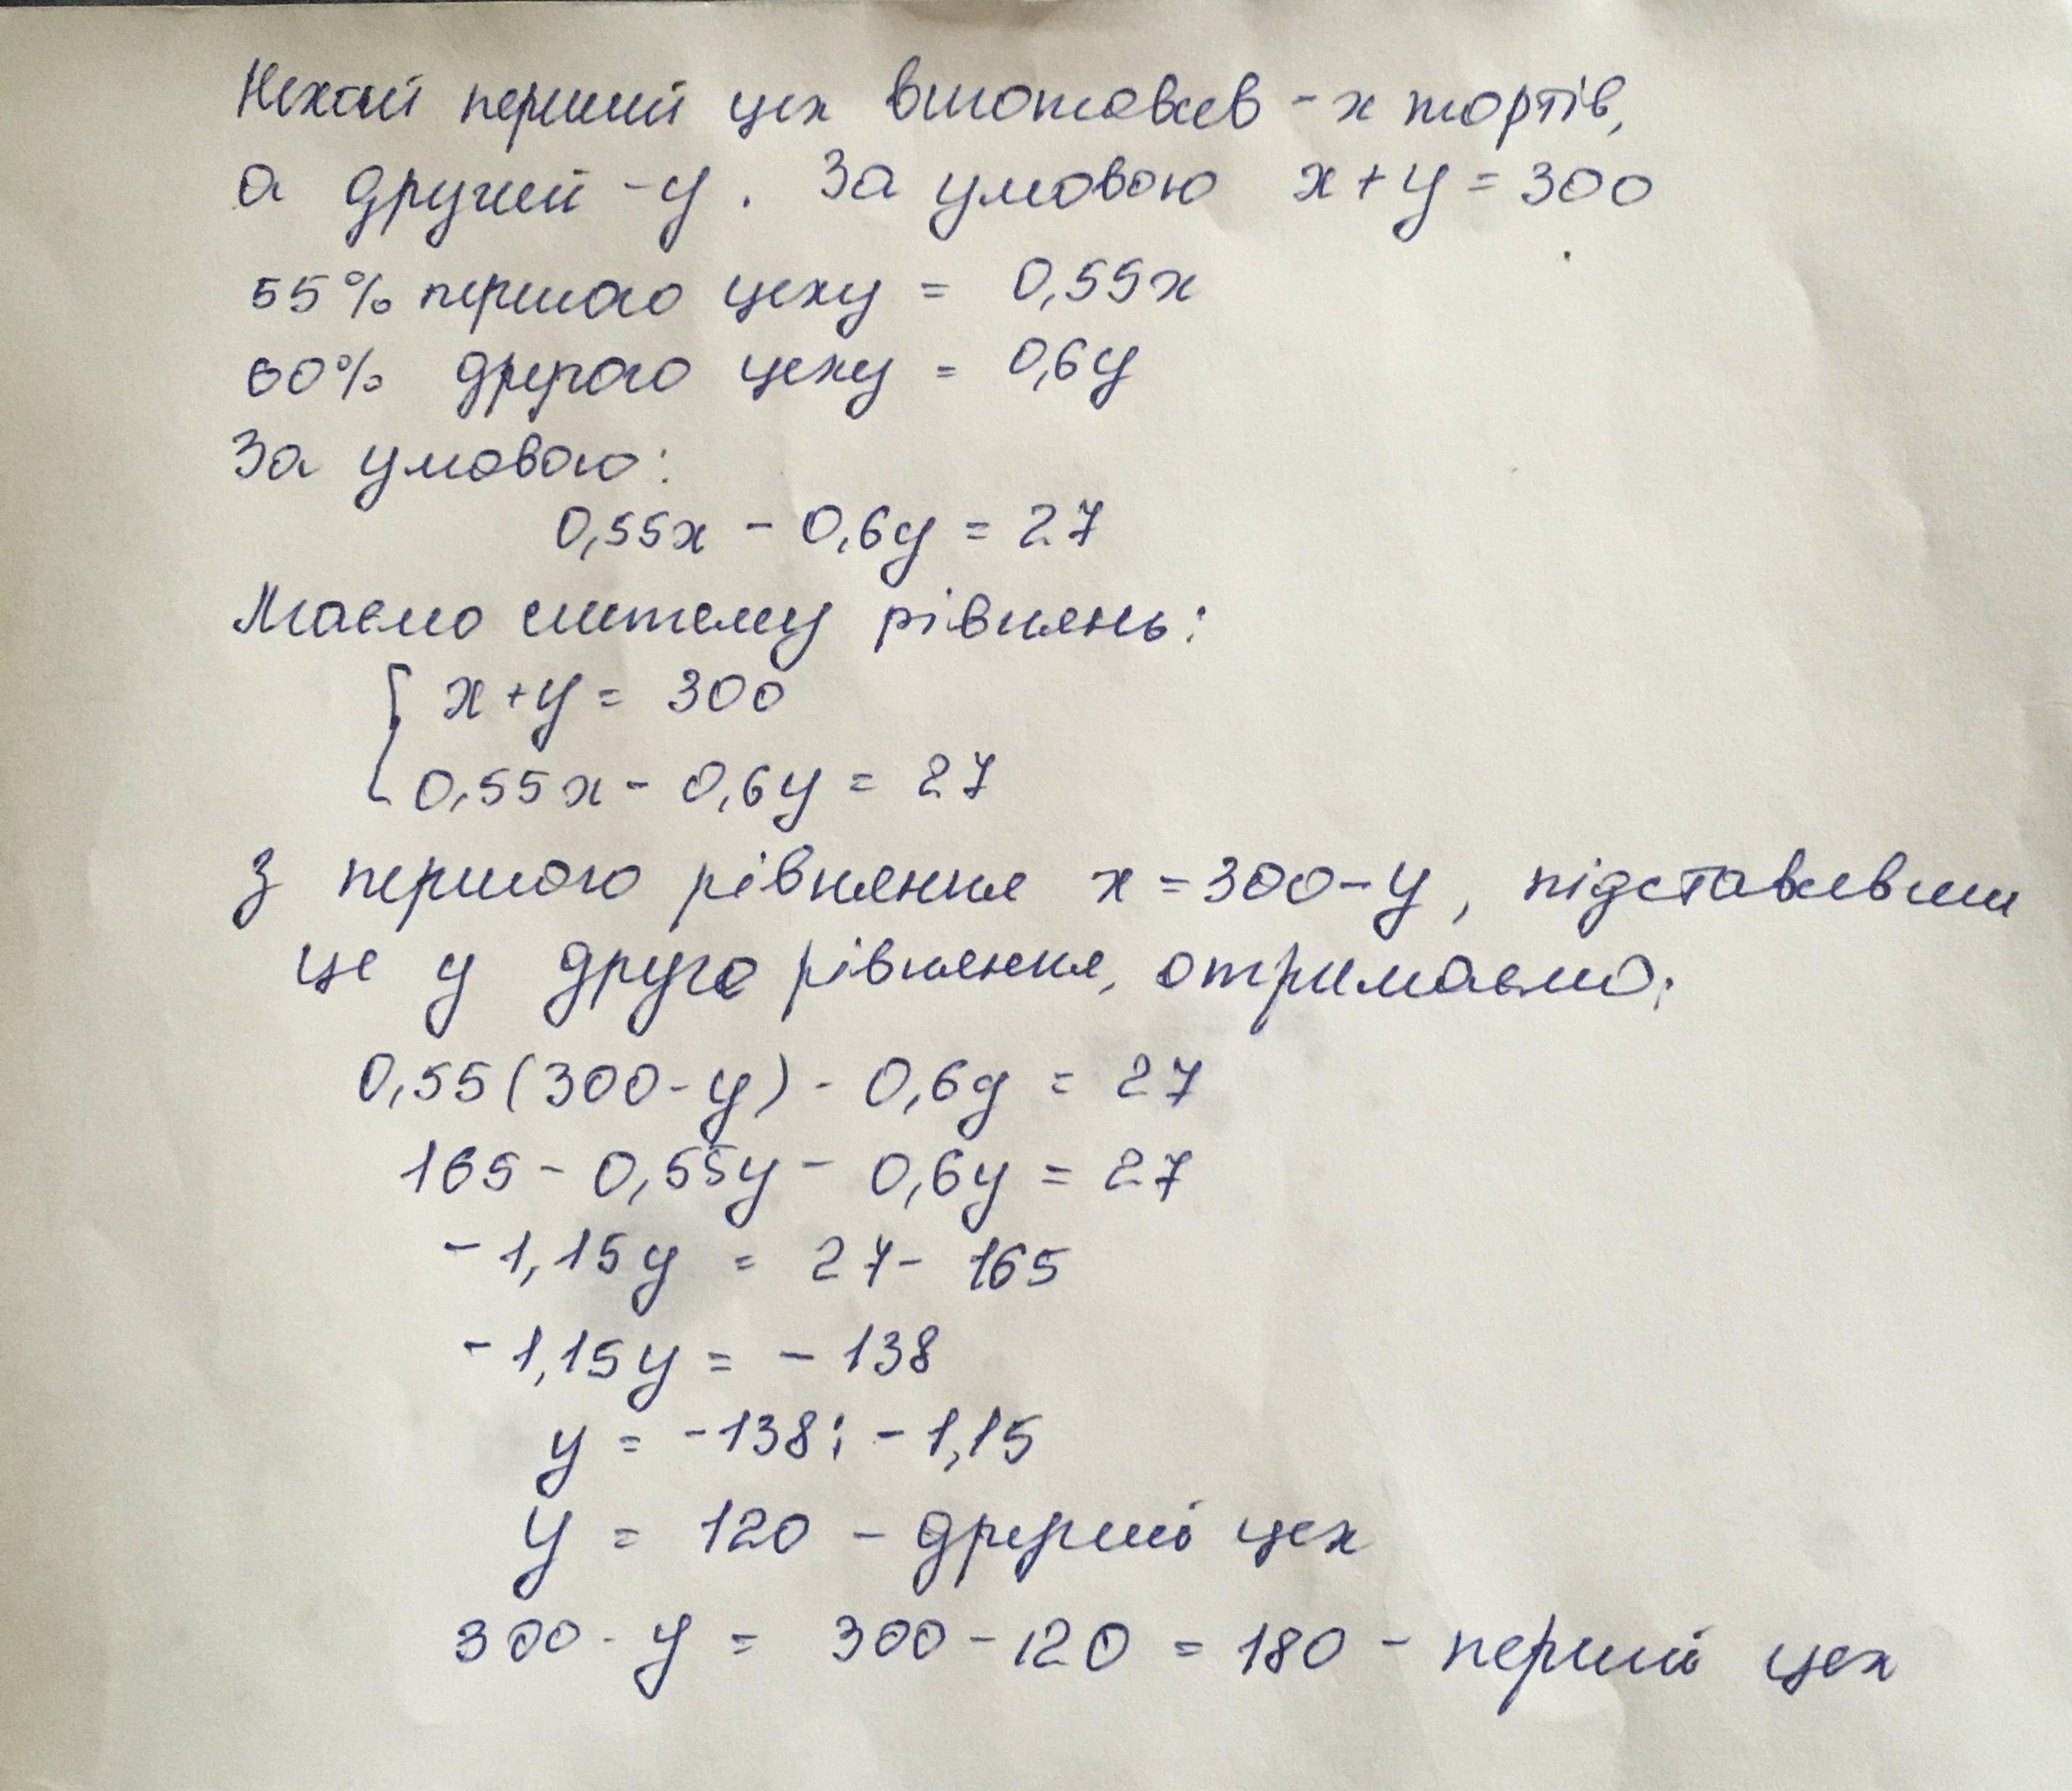 Нехай перший цех виготовив - x тортів,
а другий - y. За умовою x + y = 300
55% першого цеху = 0,55x
60% другого цеху = 0,6y
За умовою:
0,55x - 0,6y = 27
Маємо систему рівнянь:
{ x + y = 300
0,55x - 0,6y = 27
З першого рівняння x = 300 - y, підставивши
це у друге рівняння, отримаємо:
0,55(300 - y) - 0,6y = 27
165 - 0,55y - 0,6y = 27
- 1,15y = 27 - 165
- 1,15y = - 138
y = -138 : - 1,15
y = 120 - другий цех
300 - y = 300 - 120 = 180 - перший цех